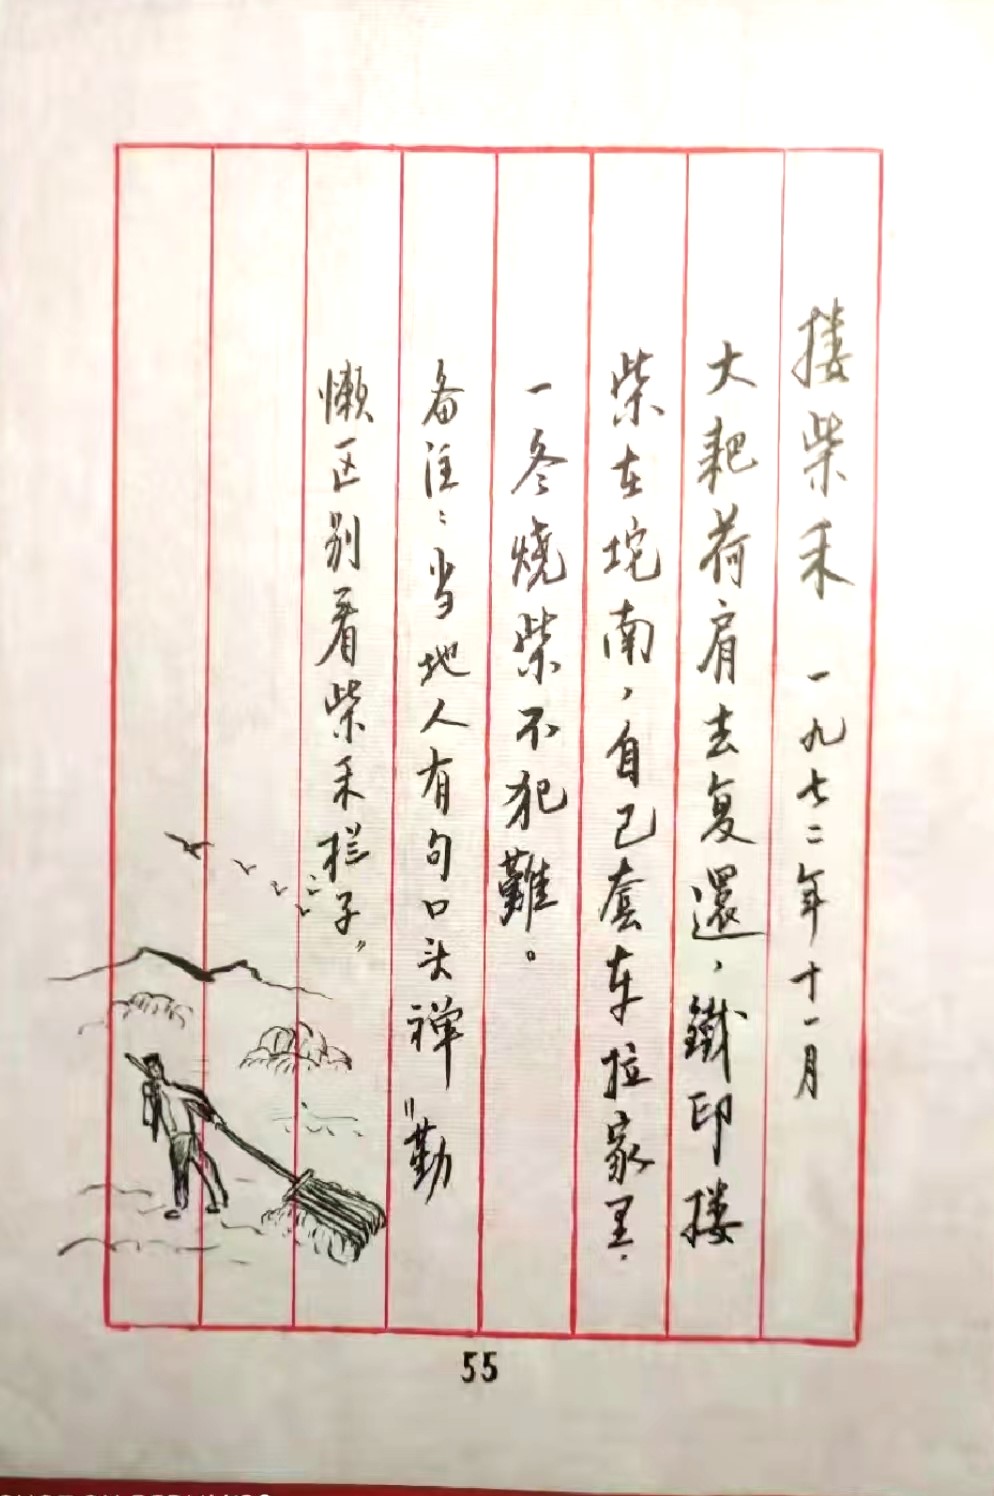 搂柴禾 一九七二年十一月
大耙荷肩去复還，鐵印搂
柴在坨南，自己套车拉家里.
一冬燒柴不犯難。
备注：当地人有句口头禅"勤
懒区别看柴禾栏子"
55